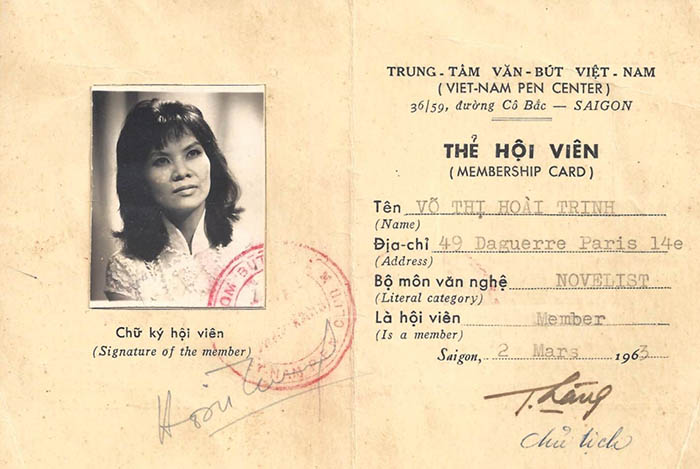 Chữ ký hội viên
(Signature of the member)
TRUNG-TÂM VĂN-BÚT VIỆT-NAM
(VIET-NAM PEN CENTER)
36/59, đường Cô Bắc — SAIGON
THẺ HỘI VIÊN
(MEMBERSHIP CARD)
Tên VÕ THỊ HOÀI TRINH
(Name)
Địa-chỉ 49 Daguerre Paris 14e
(Address)
Bộ môn văn nghệ NOVELIST
(Literal category)
Là hội viên Member
(Is a member)
Saigon, 2 Mars 1963
T. Lãng
Chủ tịch